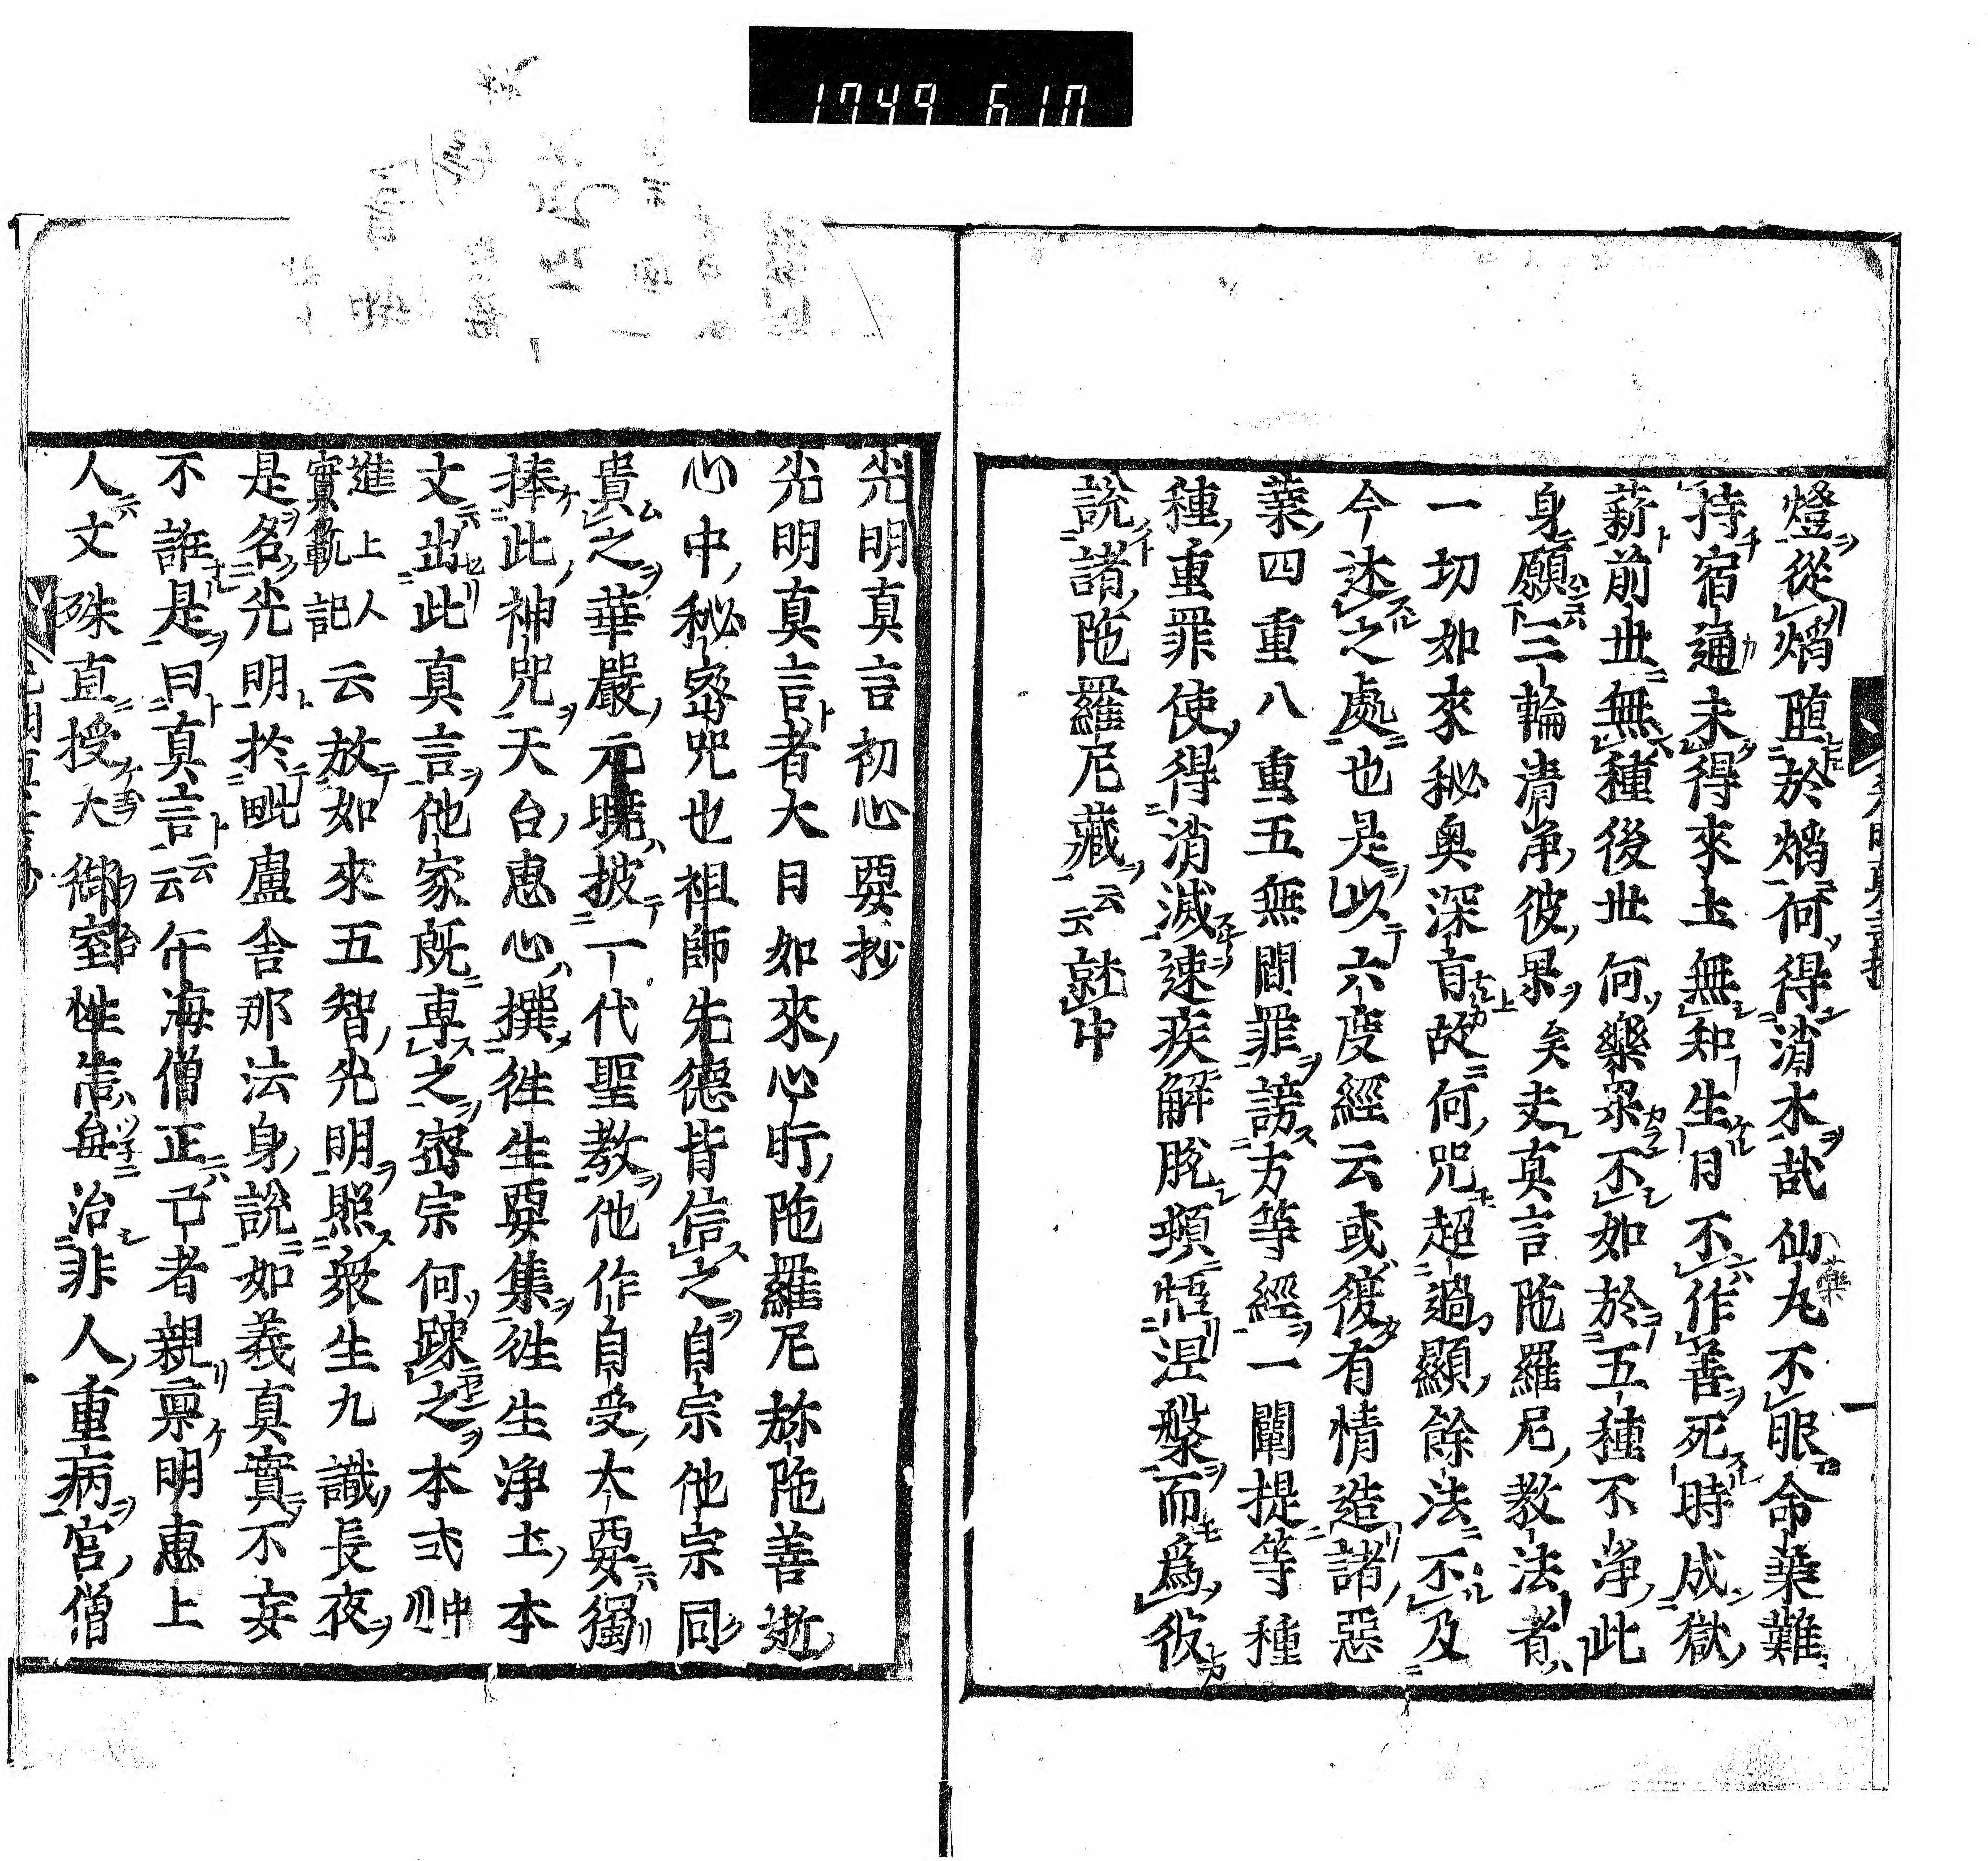 1749 610
燈從熖頭於熖何得消水哉仙丸不眠命葉難
持宿通未得來圡無知生月不作善死時成獄
薪前世無種後世何樂果不如於五種不浄此
身願三輪清浄彼果矣夫真言陁羅尼教法者
一切如來秘奥深㫖故何咒超過顯餘法不及
今述之處也是以六度經云或復有情造諸惡
業四重八重五無間罪謗方等經一闡提等種
種重罪使得消滅速疾解脱頓悟涅槃而爲彼
説諸陁羅尼藏云云就中
光明真言初心要抄
光明真言者大日如來心肝陁羅尼弥陁善逝
心中秘密咒也祖師先德皆信之自宗他宗同
貴之華嚴元曉披一代聖教他作自受大要獨
捧此神咒天台恵心撰往生要集往生浄土本
文出此真言他家既専之密宗何踈之本弍中川
進上人實範記云放如來五智光明照衆生九識長夜
是名光明於毗盧舎那法身説如義真實不妄
不誑是曰真言云云午海僧正云者親禀明恵上
人文殊直授大御室性信毎治非人重病宮僧